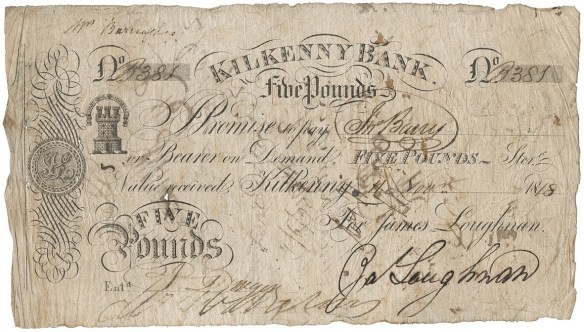 KILKENNY BANK.
No 9381 No 9381
Five Pounds
I Promise to pay Jn. Barry
or Bearer on Demand, FIVE POUNDS Ster.
Value received, Kilkenny 1818
For James Loughnan.
FIVE
Pounds
Jas Loughnan
Entd